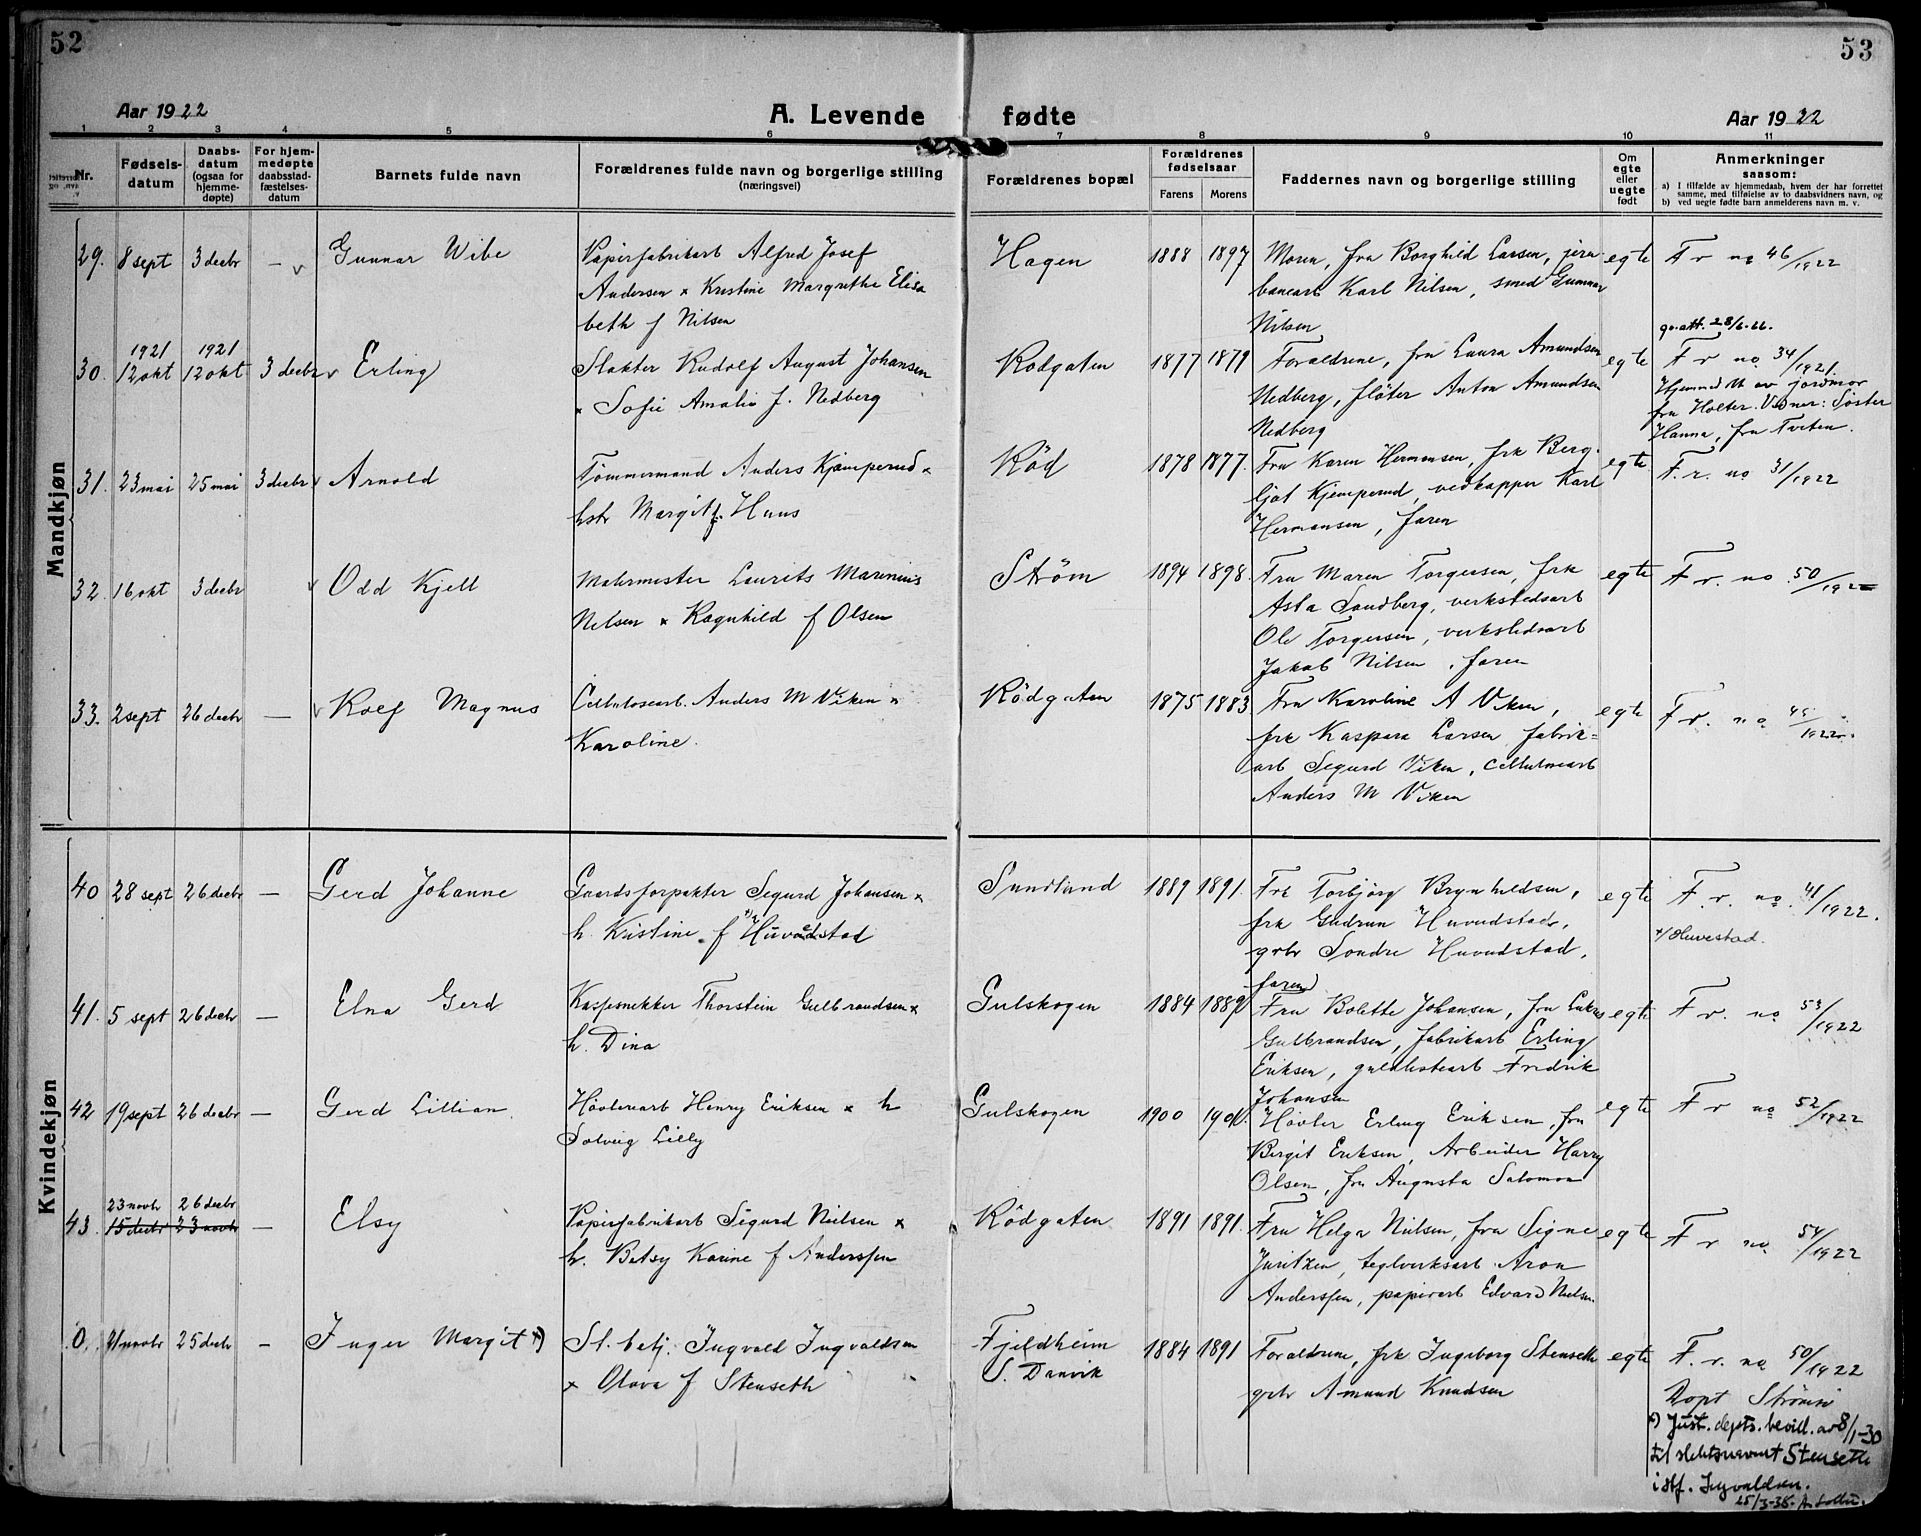 52
53
Aar 1922
A. Levende fødte
Aar 1922
1 2 3 4 5 6 7 8 9 10 11
Nr.
Fødsels-
datum
Daabs-
datum
(ogsaa for
hjemme-
døpte)
For hjem-
medøpte
daabsstad-
fæstelses-
datum
Barnets fulde navn
Forældrenes fulde navn og borgerlige stilling
(næringsvei)
Forældrenes bopæl
Forældrenes
fødselsaar
Farens Morens
Faddernes navn og borgerlige stilling
Om
egte
eller
uegte
født
Anmerkninger
saasom:
a) I tilfælde av hjemmedaab, hvem der har forrettet
samme, med tilføielse av to daabsvidners navn, og
b) ved uegte fødte barn anmelderens navn m. v.
Mandkjøn
29. 8 sept 3 decbr — v Gunnar Wibe
Papirfabrikarb Alfred Josef
Andersen x Kristine Margrethe Elisa
beth f Nilsen
Hagen 1888 1897
Moren, fru Borghild Larsen, jern
banearb Karl Nilsen, smed Gunnar
Nilsen
egte
F r no 46/1922
30. 1921 12 okt 1921 12 okt 3 decbr v Erling
Slakter Rudolf August Johansen
x Sofie Amalie f. Nedberg
Rödgaten 1877 1879
Foraldrene, fru Laura Amundsen
Nedberg, flöter Anton Amundsen
Nedberg
egte
go. att. 28/6-66.
F r no 34/1921.
Hjemmed​bt av jordmor
fru Holter. Vidner: Söster
Hanna, fru Tveten.
31. 23 mai 25 mai 3 decbr v Arnold
Tømmermand Anders Kjæmperud x
hstr Margit f. Huus
Röd 1878 1877.
Fru Karen Hermansen, frk Berg-
ljot Kjemperud, vedkapper Karl
Hermansen, faren
egte
F. r. no 31/1922
32. 16 okt 3 decbr v Odd Kjell
Malermester Laurits Marinius
Nilsen x Ragnhild f Olsen
Strøm 1894 1898.
Fru Maren Torgersen, frk
Asta Sandberg, verkstedsarb
Ole Torgersen, verkstedsarb
Jakob Nilsen, faren
egte
F r. no. 50/1922
33. 2 sept 26 decbr — v Rolf Magnus
Cellulosearb. Anders M Viken x
Karoline.
Rödgaten 1875 1883
Fru Karoline A Viken,
frk Kaspara Larsen, fabrik-
arb Sigurd Viken, cellulosearb
Anders M Viken
egte
F r. no 45/1922.
Kvindekjøn
40 28 sept 26 decbr — Gerd Johanne
Gaardsforpakter Sigurd Johansen x
h. Kristine f Huvudstad
Sundland 1889 1891.
Frk Torbjörg Brynhildsen,
frk Gudrun Huvudstad,
grbr Sondre Huvudstad,
faren
egte
F. r. no. 41/1922.
x/ Huvestad.
41. 5 sept 26 decbr — Elna Gerd
Kassesnekker Thorstein Gulbrandsen x
h. Dina
Gulskogen 1884 1889
Fru Bolette Johansen, fru
Gulbrandsen, fabrikarb Erling
Eriksen, Fredrik
Johansen
egte
F r. no 53/1922
42 19 sept 26 decbr — Gerd Lillian
Høvleriarb Henry Eriksen x h
Solveig Lilly
Gulskogen 1900 1901.
Høvler Erling Eriksen, fru
Birgit Eriksen, Arbeider Harry
Olsen, fru Augusta Salomon
egte
F r no 52/1922
43. 23 novbr 26 decbr
15 decbr 23 novbr — Elsy
Papirfabrikarb Sigurd Nielsen x
h. Betsy Karine f Anderssen
Rödgaten 1891 1891.
Fru Helga Nielsen, fru Signe
Juritzen, teglverksarb Aron
Anderssen, papirarb Edvard Nielsen
egte
F r no. 54/1922
0. 21 novbr 25 decbr — Inger Margit x)
St. betj. Ingvald Ingvaldsen
x Olava f Stenseth
Fjeldheim
S. Danvik
1884 1891
Foraldrene, frk Ingeborg Stenseth
grbr Amund Knudsen
egte
F. r. no 50/1922
Døpt Strømsø
x) Just. depts. bevill. av 8/1-30
til slektsnavnet Stenseth
istf. Ingvaldsen.
25/3-38.